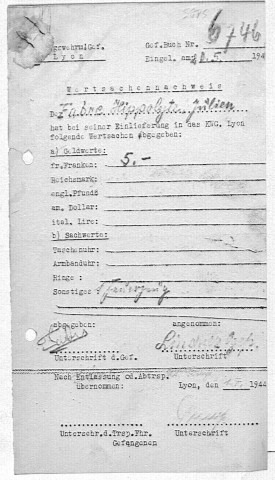 Wehrm.Gef.
Lyon
Gef.Buch Nr. 6746
Eingel.am 20.5. 194
Wertsachennachweis
De Fabre Hippolyte Julien
hat bei seiner Einlieferung in das KWG. Lyon
folgende Wertsachen abgegeben:
a) Geldwerte:
fr.Franken: 5.-
Reichsmark:
engl.Pfunde
am. Dollar:
ital. Lire:
b) Sachwerte:
Taschenuhr:
Armbanduhr:
Ringe :
Sonstiges 1 Feuerzeug
abgegeben: angenommen:
Unterschrift d.Gef. Unterschrift
Nach Entlassung od.Abtrsp.
übernommen: Lyon, den 1944
Unterschr.d.Trsp.Fhr. Unterschrift
Gefangenen